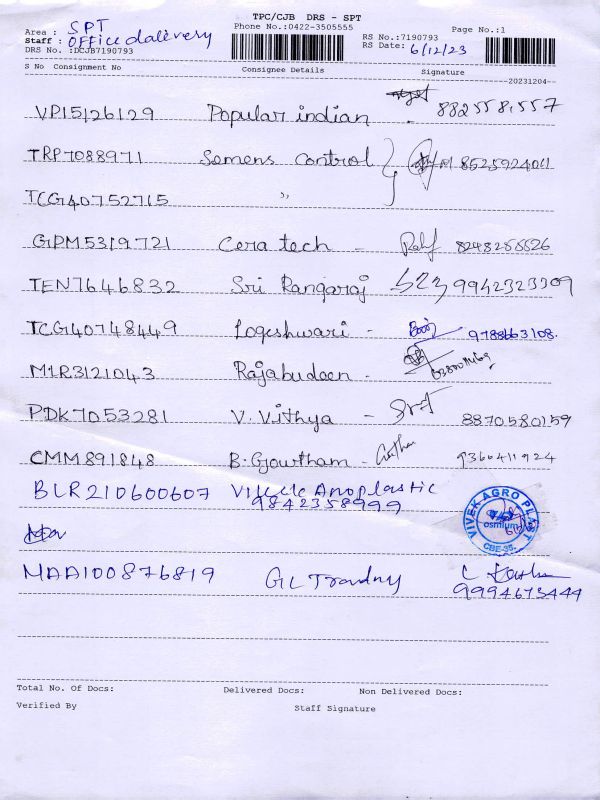 TPC/CJB DRS - SPT
Phone No.:0422-3505555
Page No.:1
Area : SPT
RS No.:7190793
Staff : Office dalivery
RS Date: 6/12/23
DRS No.:DCJB7190793
S No Consignment No Consignee Details Signature
20231204
VPI5126129 Popular indian 8825581557
TRP7088971 Semens control 8525924011
TCG40752715 "
GPM5319721 Cera tech - 8248255526
TEN7646832 Sri Rangaraj 9942323309
TCG40748449 Logeshwari - 9788663108.
MTR3121043 Rajabudeen -
PDK7053281 V. Vithya - 8870580159
CMM891848 B. Gowtham - 9360411924
BLR210600607 Anoplastic
9842358999
VIVEK AGRO PLAST
osmium
CBE-35.
MAA100876819 GL Tradny
9994673444
Total No. Of Docs: Delivered Docs: Non Delivered Docs:
Verified By Staff Signature